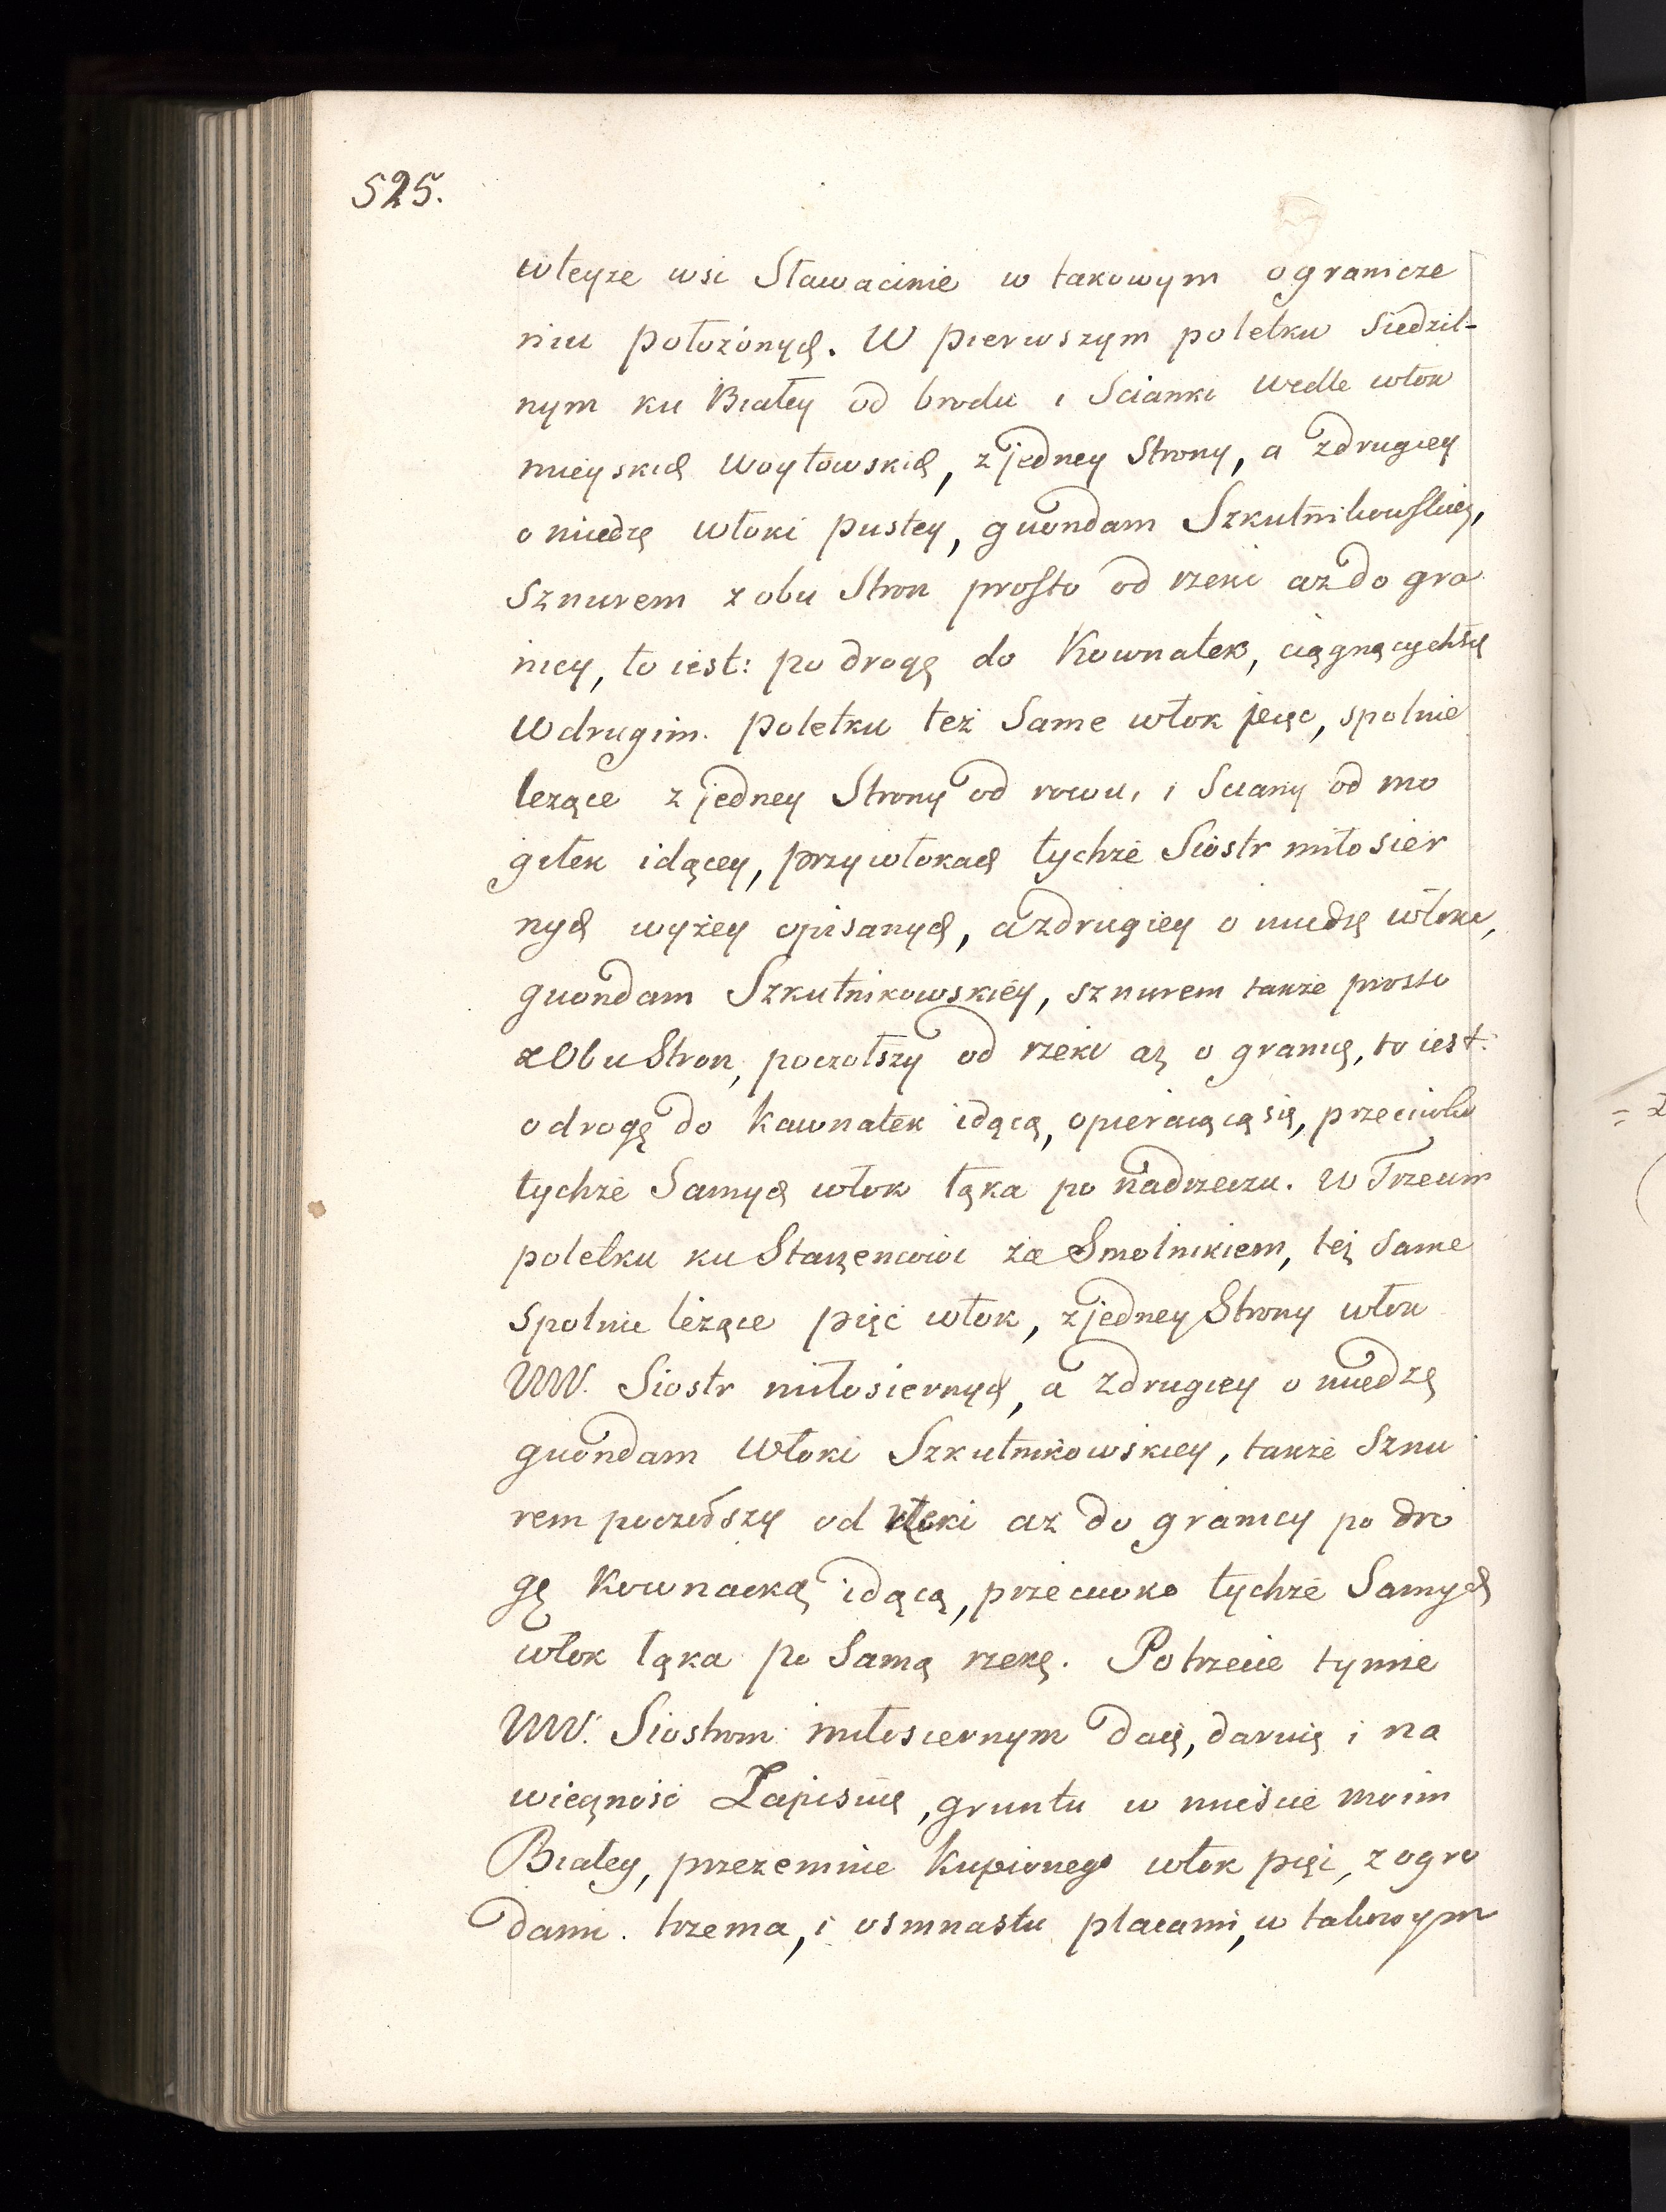 525.
wteyże wsi Sławacinie w takowym ogranicze
niu położonych. W pierwszym poletku Siedzil-
nym ku Białey od brodu i Scianki wedle włok
mieyskich Woytowskich, z jedney Strony, a zdrugiey
o miedzę włoki pustey, quondam Szkutnikowskiey,
Sznurem z obu Stron prosto od rzeki aż do gra
nicy, to iest: po drogę do Kownatek, ciągnącychsię
W drugim. poletku też Same włok pięc, spolnie
leżące z jedney Strony od rowu, i Sciany od mo
giłek idącey, przy włokach tychże Siostr miłosier
nych wyżey opisanych, a zdrugiey o miedzę włoki,
quondam Szkutnikowskiéy, sznurem także prosto
z Obu Stron, począwszy od rzeki aż o granicę, to iest:
o drogę do Kawnatek idącą, opieraiącą się, przeciwko
tychże Samych włok łąka po nadrzeczu. W Trzecim
poletku ku Starzencowi za Smolnikiem, też Same
Spolnie leżące pięć włok, z jedney Strony włok
WW. Siostr miłosiernych, a zdrugiey o miedzę
quondam Włoki Szkutnikowskiey, także Sznu
rem począwszy od rzeki aż do granicy po dro
gę Kownacką idącą, przeciwko tychże Samych
włok łąka po Samą rzekę. Potrzecie tymże
WW. Siostrom miłosiernym daię, daruię i na
wieczność Zapisuię, gruntu w mieście moim
Białey, przezemnie Kupionego włok pięć, z ogro
dami. trzema, i osmnastu placami, w takowym